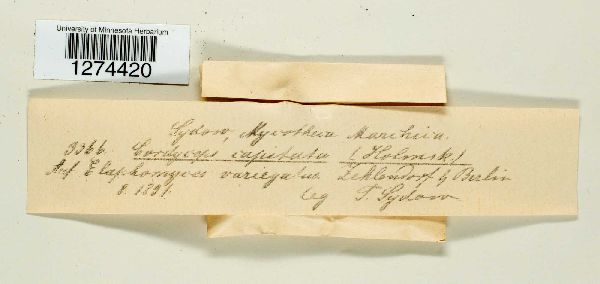 University of Minnesota Herbarium
1274420
Sydow, Mycotheca Marchica.
3366. Cordyceps capitata (Holmsk.)
Auf Elaphomyces variegatus Zehlendorf b/ Berlin
8. 1891. leg P. Sydow